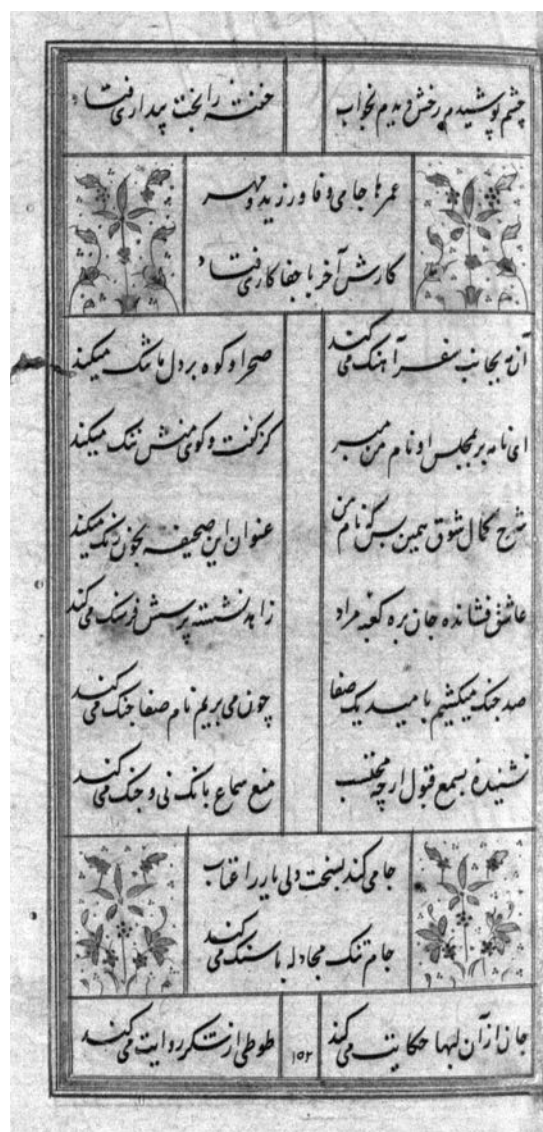 چشم پوشیدم رخش دیدم بخواب
خفته را بخت بیداری فتاد
عمرها جامی وفا ورزید و مهر
کارش آخر با جفاکاری فتاد
آن مه بجانب سفر آهنک می کند
صحرا و کوه بر دل ما تنک میکند
ای نامه بر بمجلس او نام من مبر
کز کفت و کوی منش ننک میکند
شرح کمال شوق همین بس که نام من
عنوان این صحیفه بخون رنک میکند
عاشق فشانده جان بره کعبه مراد
زاهد نشسته پرسش فرسنک می کند
صد جنک میکشیم بامید یک صفا
چون می بریم نام صفا جنک می کند
نشنیده بسمع قبول ار چه محتسب
منع سماع بانک نی و چنک می کند
جامی کند بسخت دلی یار را عتاب
جام تنک مجادله با سنک می کند
جان از آن لبها حکایت می کند
طوطی از شکر روایت می کند
۱۵۲